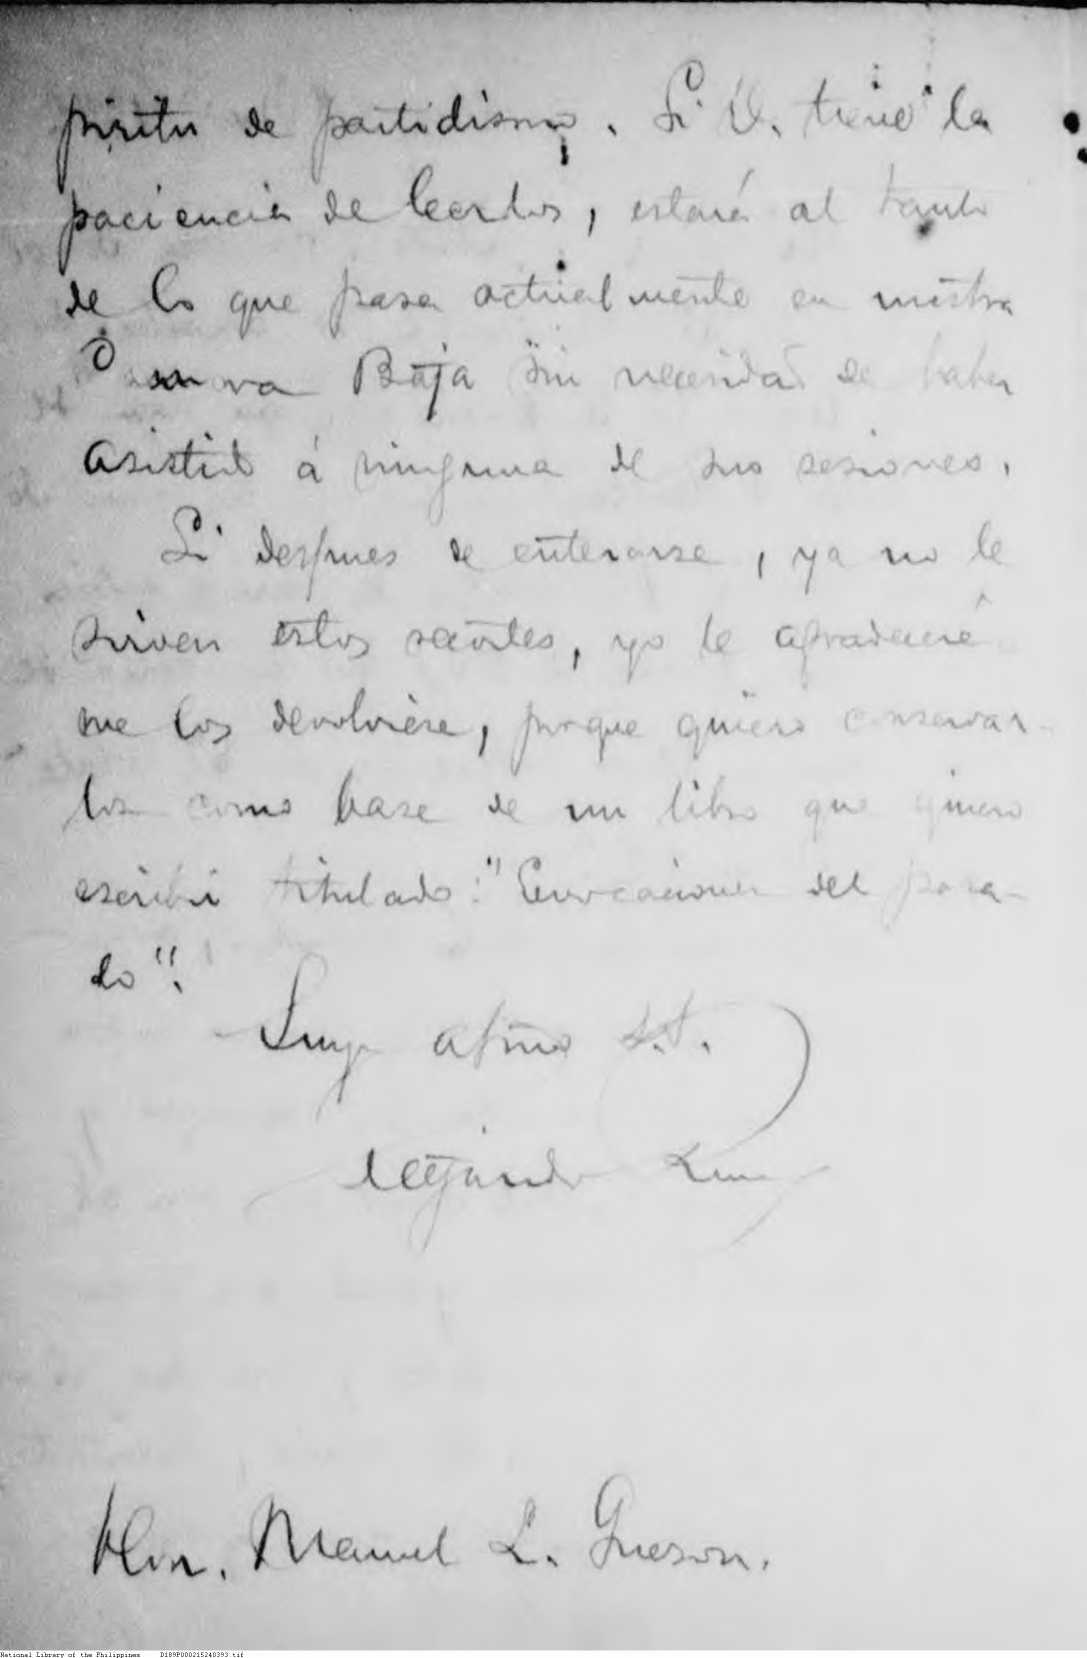 píritu de partidismo. Si V. tiene la
paciencia de leerlos, estará al tanto
de lo que pasa actualmente en nuestra
Cámara Baja sin necesidad de haber
asistido á ninguna de sus sesiones.
Si despues de enterarse, ya no le
sirven estos recortes, yo le agradeceré
me los devolviere, porque quiero conservar-
los como base de un libro que quiero
escribir titulado: "Evocaciones del pasa-
do".
Suyo afmo s.s.
Hon. Manuel L. Quezon.
National Library of the Philippines D189P000215240393.tif